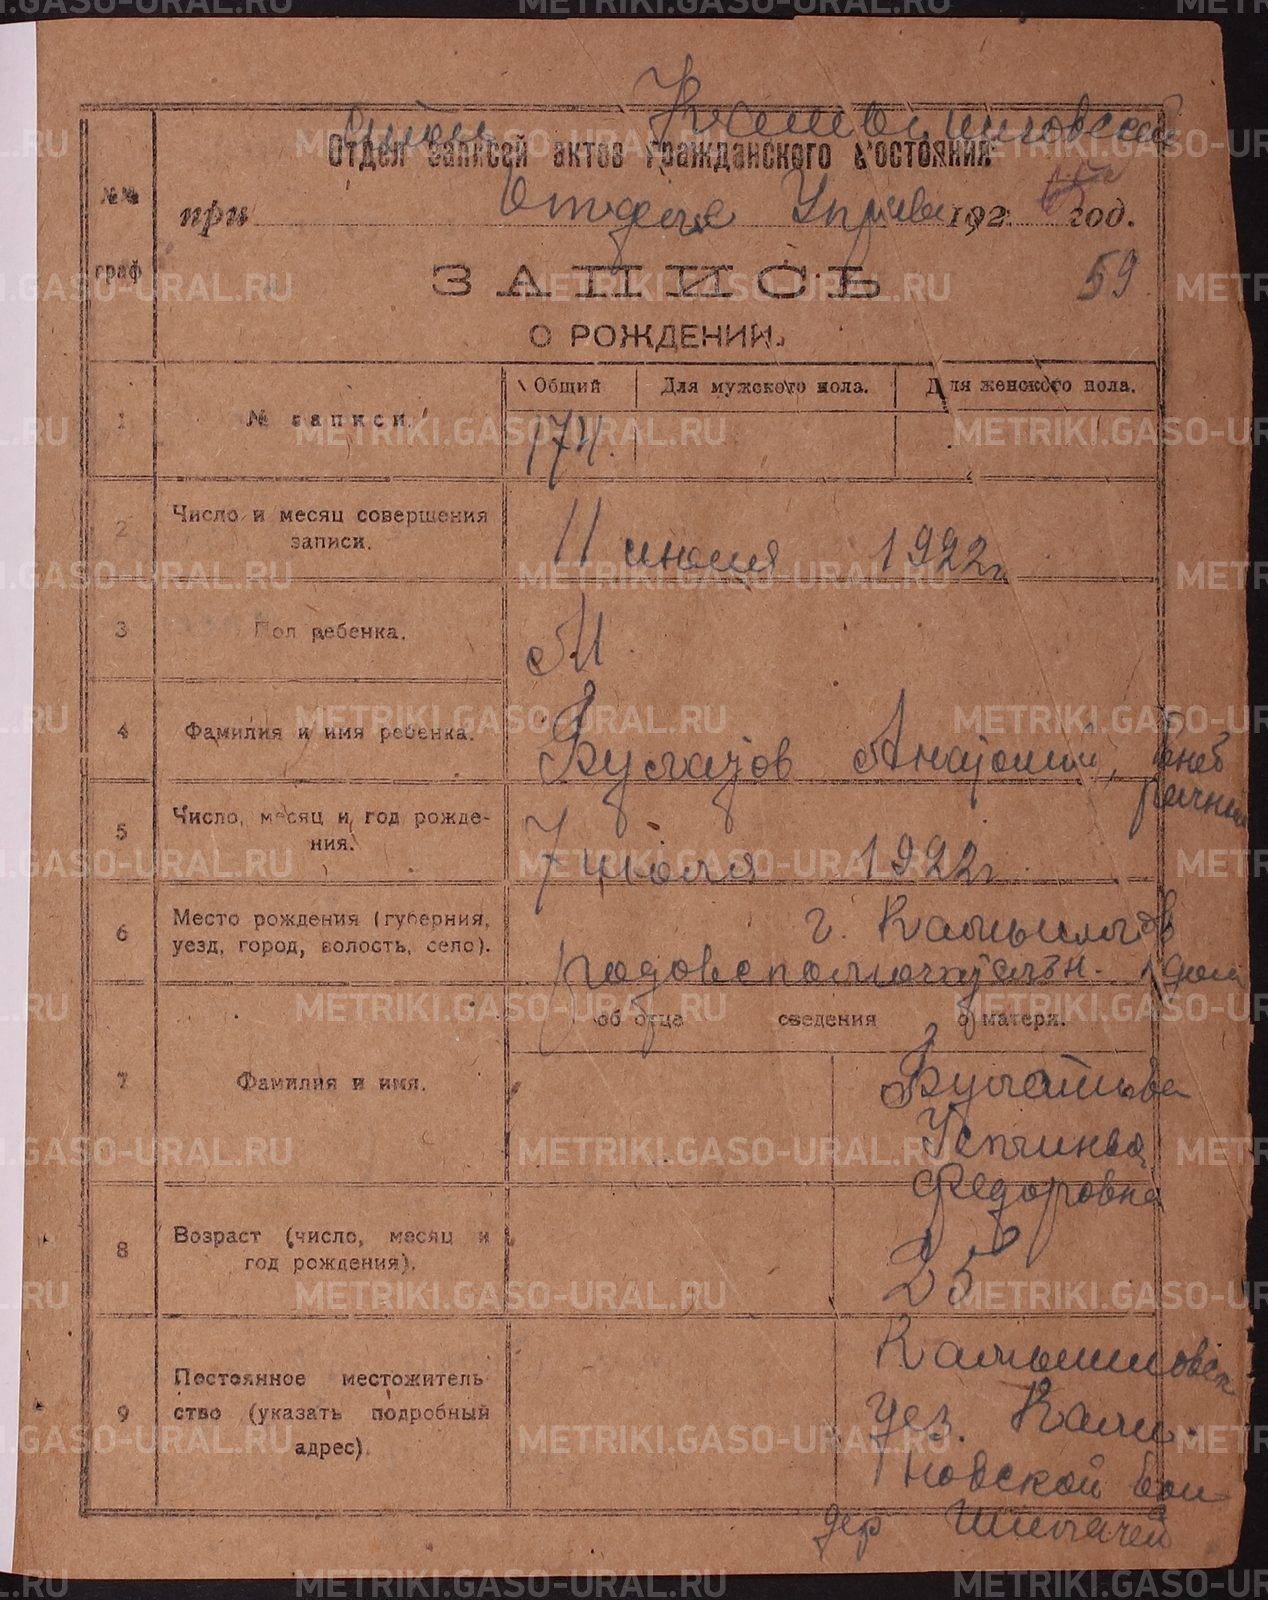 Отдел записей актов гражданского состояния
№№ граф
при Отделе Управ 192 год.
ЗАПИСЬ
59
О РОЖДЕНИИ.
1 № записи. Общий Для мужского пола. Для женского пола.
174.
2 Число и месяц совершения записи. 11 июля 1922 г
3 Пол ребенка. М
4 Фамилия и имя ребенка. Анатолий, внеб
рачный
5 Число, месяц и год рождения. 7 июля 1922 г.
6 Место рождения (губерния, уезд, город, волость, село). г. Камышлов
родовспомочательн. дом
об отце сведения о матери.
7 Фамилия и имя.
Устинья
Федоровна
8 Возраст (число, месяц и год рождения). 25
9 Постоянное местожительство (указать подробный адрес). Камышловск
уез.
новской вол
дер
METRIKI.GASO-URAL.RU